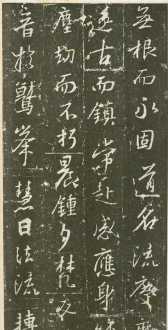 無根而永固道名流慶
遂古而鎮常赴感應身
塵劫而不朽晨鍾夕梵交
音於鷲峯慧日法流轉